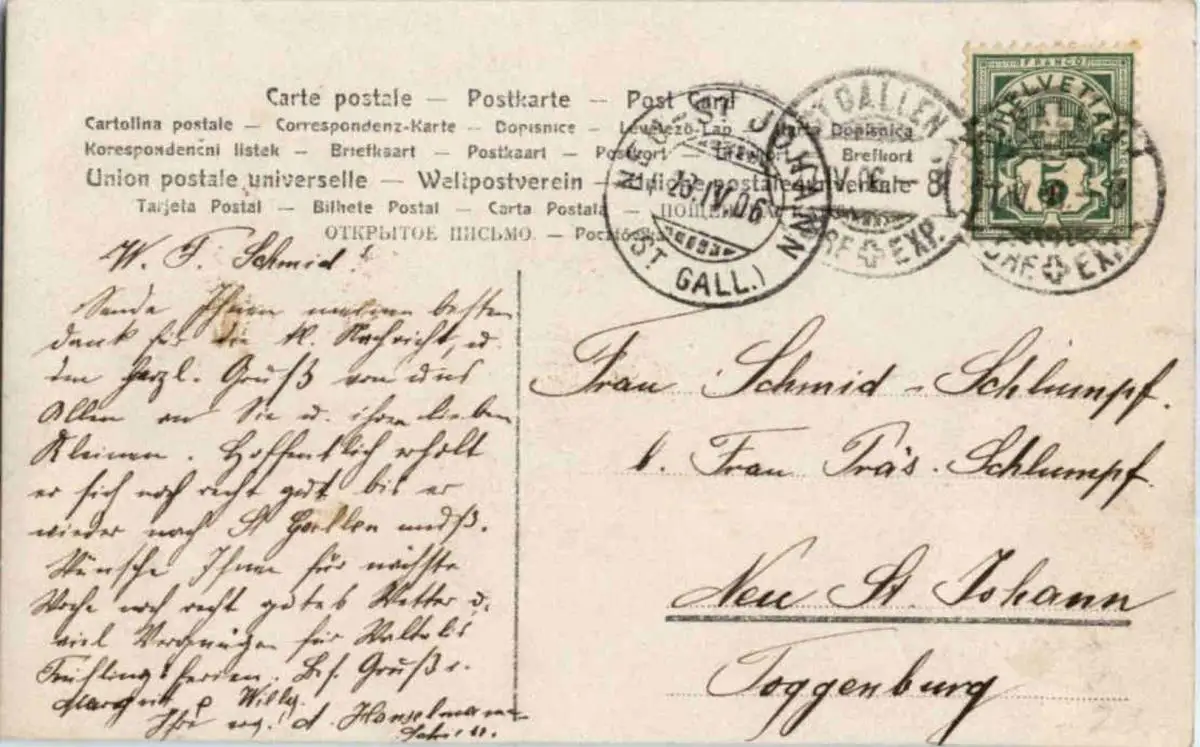 Carte postale — Postkarte — Post Card
Cartolina postale — Correspondenz-Karte — Dopisnice — Levelező-Lap — Karta Dopisnica
Korespondenčni listek — Briefkaart — Postkaart — Postkort — Brefkort
Union postale universelle — Weltpostverein — Unione postale universale
Tarjeta Postal — Bilhete Postal — Carta Postala —
ОТКРЫТОЕ ПИСЬМО. — Pocztówka
FRANCO
HELVETIA
5
NEU-ST. JOHANN
18.IV.06
(ST GALL.)
ST. GALLEN
IV.06 – 8
BRF. EXP.
BRF. EXP.
W. F. Schmid!
Sende Ihnen meinen besten
dank für die Kl. Nachricht, u.
den herzl. Gruß von uns
Allen an Sie u. ihren lieben
Kleinen. Hoffentlich erholt
er sich noch recht gut bis er
wieder nach St Gallen muß.
Wünsche Ihnen für nächste
Woche noch recht gutes Wetter u.
viel Vergnügen für
Frühlingsferien. Gruß v.
Margrit u Willy.
Ihre A. Hanselmann
Frau Schmid-Schlumpf.
b. Frau Präs. Schlumpf.
Neu St. Johann
Toggenburg